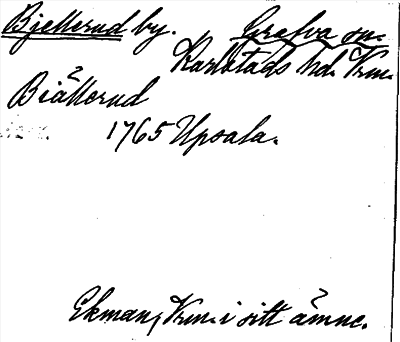 Bjellerud by. Grafva sn.
Karlstads hd. Vrm.
Biällerud
1765 Upsala.
Ekman, Vrm. i sitt ämne.